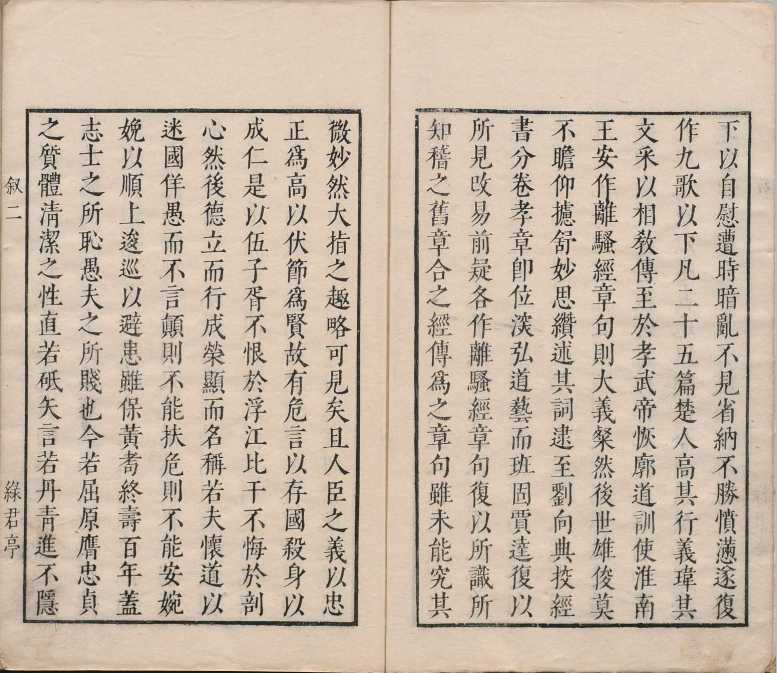 下以自慰遭時暗亂不見省納不勝憤懣遂復
作九歌以下凡二十五篇楚人高其行義瑋其
文采以相敎傳至於孝武帝恢廓道訓使淮南
王安作離騷經章句則大義粲然後世雄俊莫
不瞻仰攄舒妙思纘述其詞逮至劉向典挍經
書分卷孝章卽位深弘道藝而班固賈逵復以
所見改易前疑各作離騷經章句復以所識所
知稽之舊章合之經傳爲之章句雖未能究其
微妙然大指之趣略可見矣且人臣之義以忠
正爲高以伏節爲賢故有危言以存國殺身以
成仁是以伍子胥不恨於浮江比干不悔於剖
心然後德立而行成榮顯而名稱若夫懷道以
迷國佯愚而不言顚則不能扶危則不能安婉
娩以順上逡巡以避患雖保黃耇終壽百年蓋
志士之所恥愚夫之所賤也今若屈原膺忠貞
之質體淸潔之性直若砥矢言若丹青進不隱
叙二
綠君亭